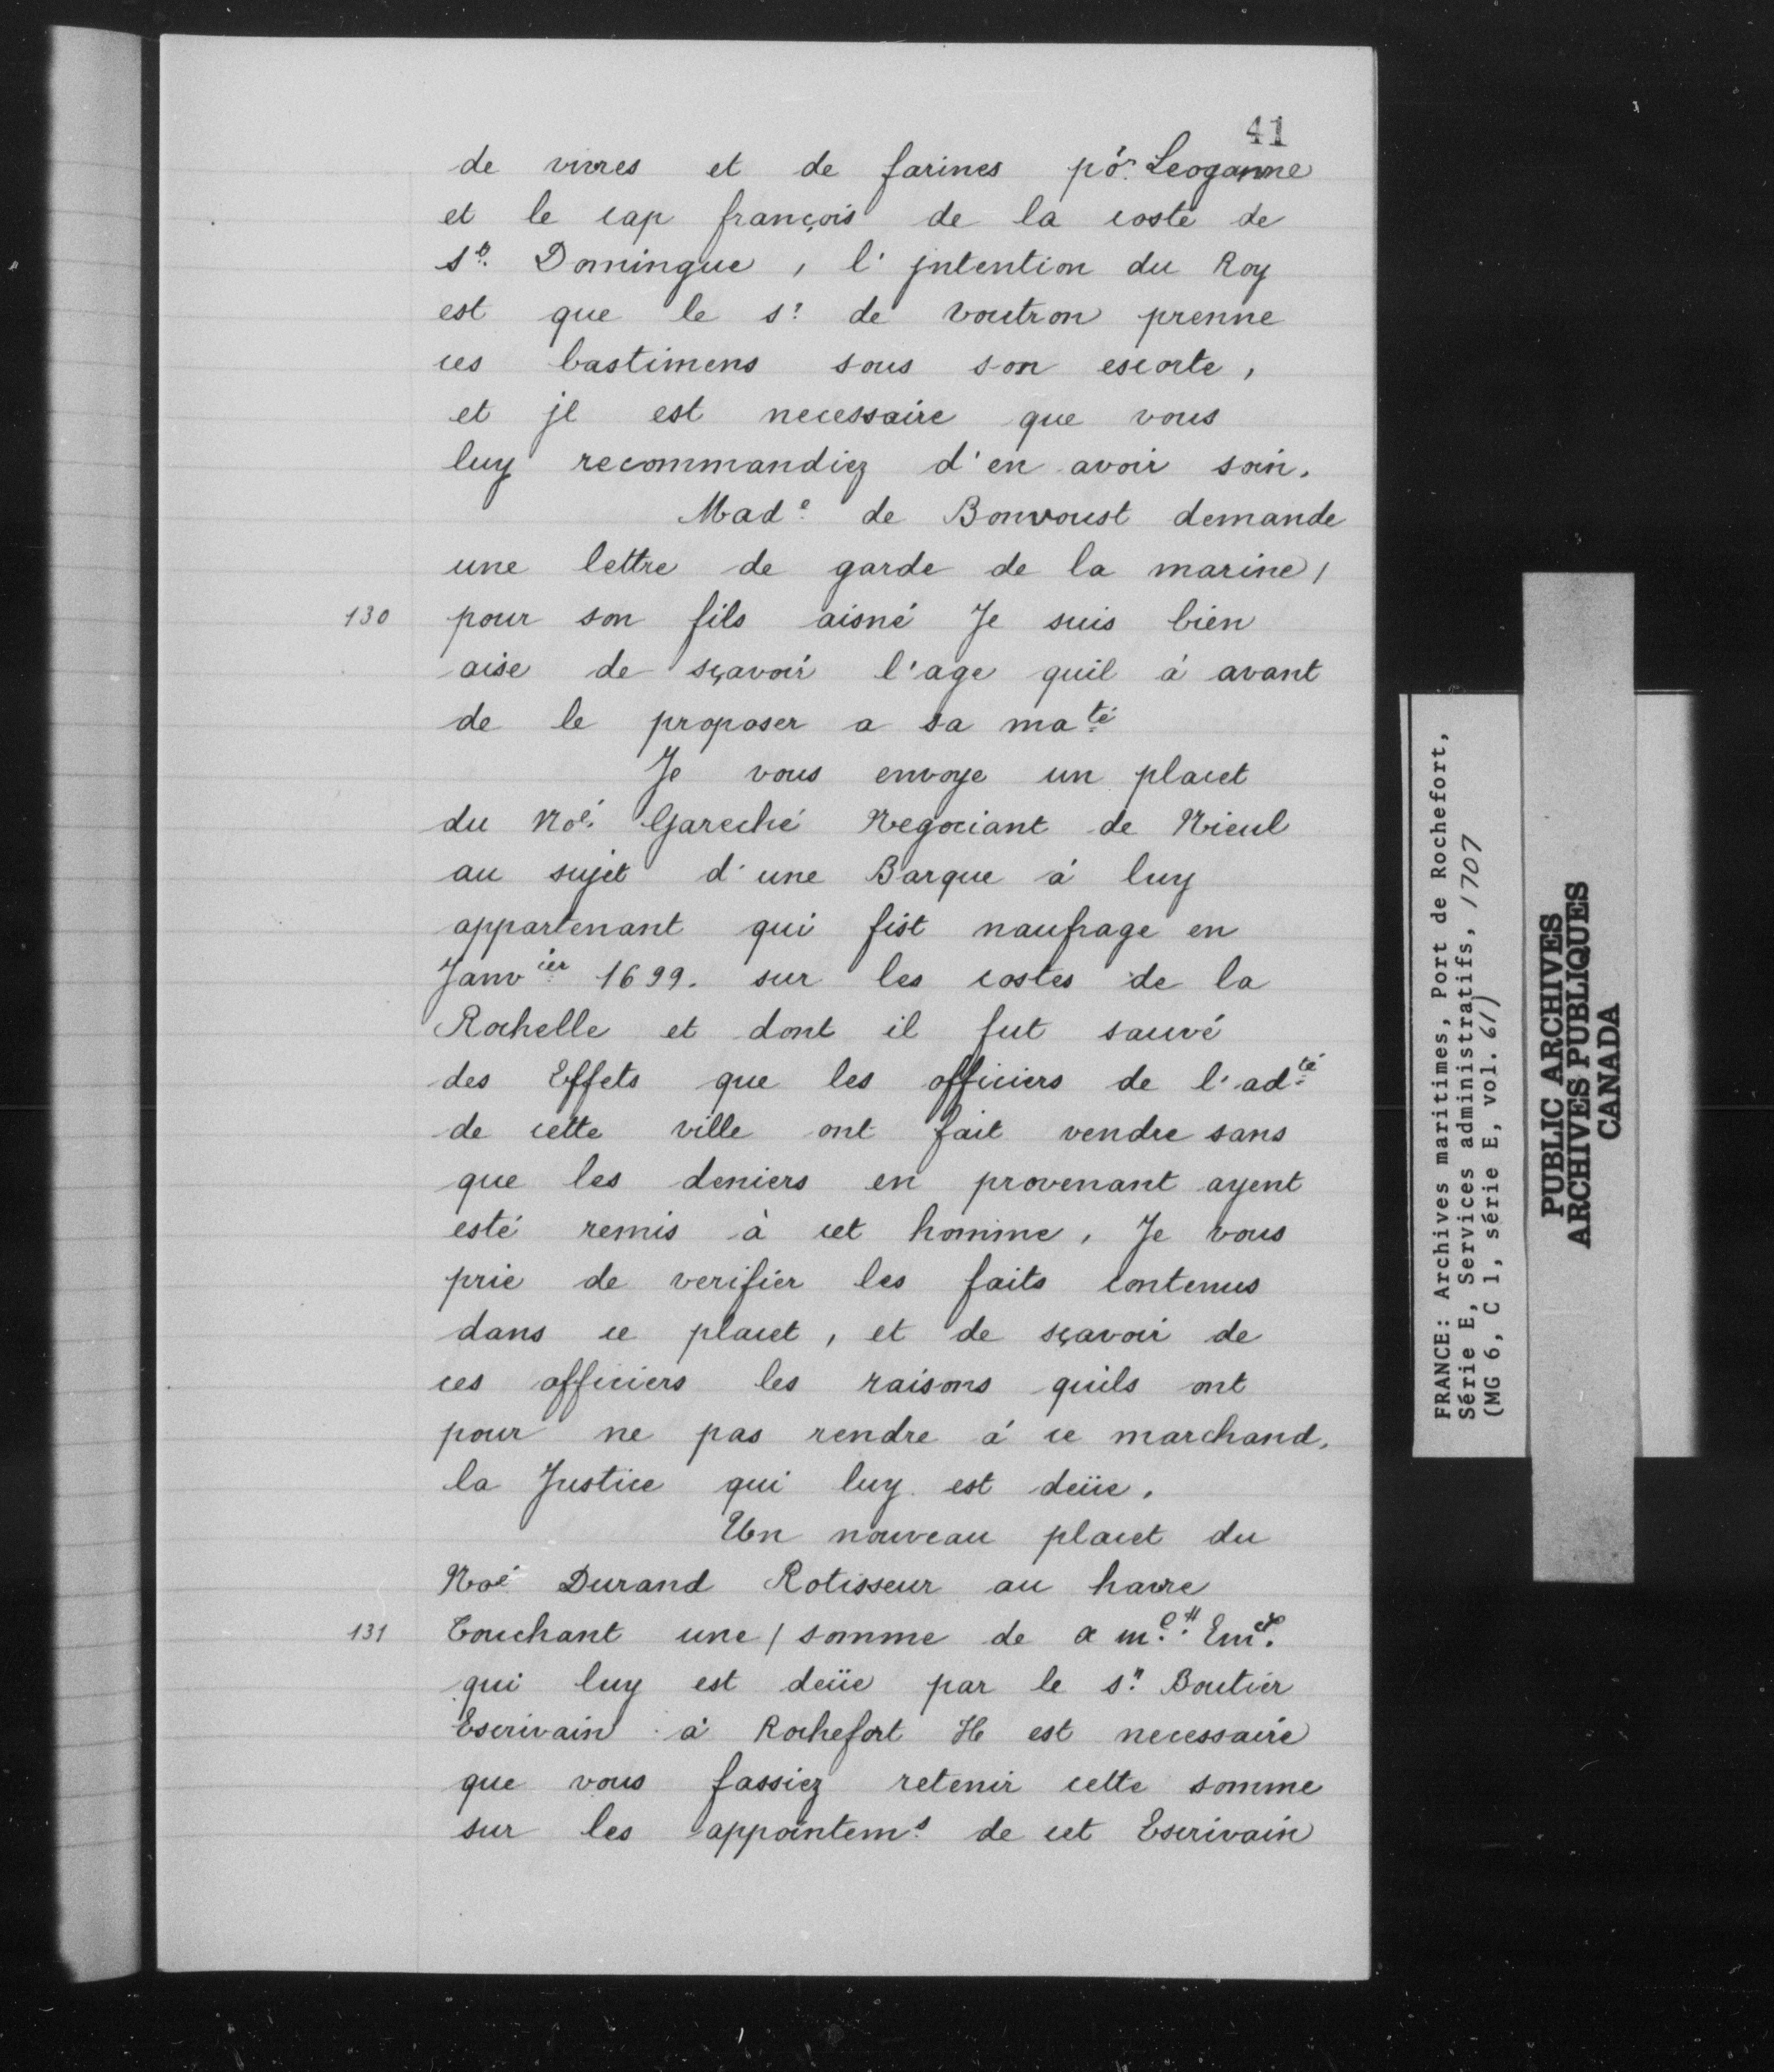 41
de vivres et de farines po.r Leoganne
et le cap françois de la coste de
St. Domingue, l'jntention du Roy
est que le sr. de voutron prenne
ces bastimens sous son escorte,
et jl est necessaire que vous
luy recommandiez d'en avoir soin.
Made. de Bonvoust demande
une lettre de garde de la marine /
130 pour son fils aisné Je suis bien
aise de sçavoir l'age quil à avant
de le proposer a sa maté
Je vous envoye un placet
du Noé. Gareché Negociant de Nieul
au sujet d'une Barque à luy
appartenant qui fist naufrage en
Janvier 1699. sur les costes de la
Rochelle et dont il fut sauvé
des Effets que les officiers de l'adté
de cette ville ont fait vendre sans
que les deniers en provenant ayent
esté remis à cet homme, Je vous
prie de verifier les faits contenus
dans ce placet, et de sçavoir de
ces officiers les raisons quils ont
pour ne pas rendre à ce marchand,
la Justice qui luy est deüe.
Un nouveau placet du
Noé Durand Rotisseur au havre
131 Touchant une / somme de
qui luy est deüe par le sr. Boutier
Escrivain à Rochefort Il est necessaire
que vous fassiez retenir cette somme
sur les appointems. de cet Escrivain
FRANCE: Archives maritimes, Port de Rochefort,
Série E, Services administratifs, 1707
(MG 6, C 1, série E, vol. 61)
PUBLIC ARCHIVES
ARCHIVES PUBLIQUES
CANADA